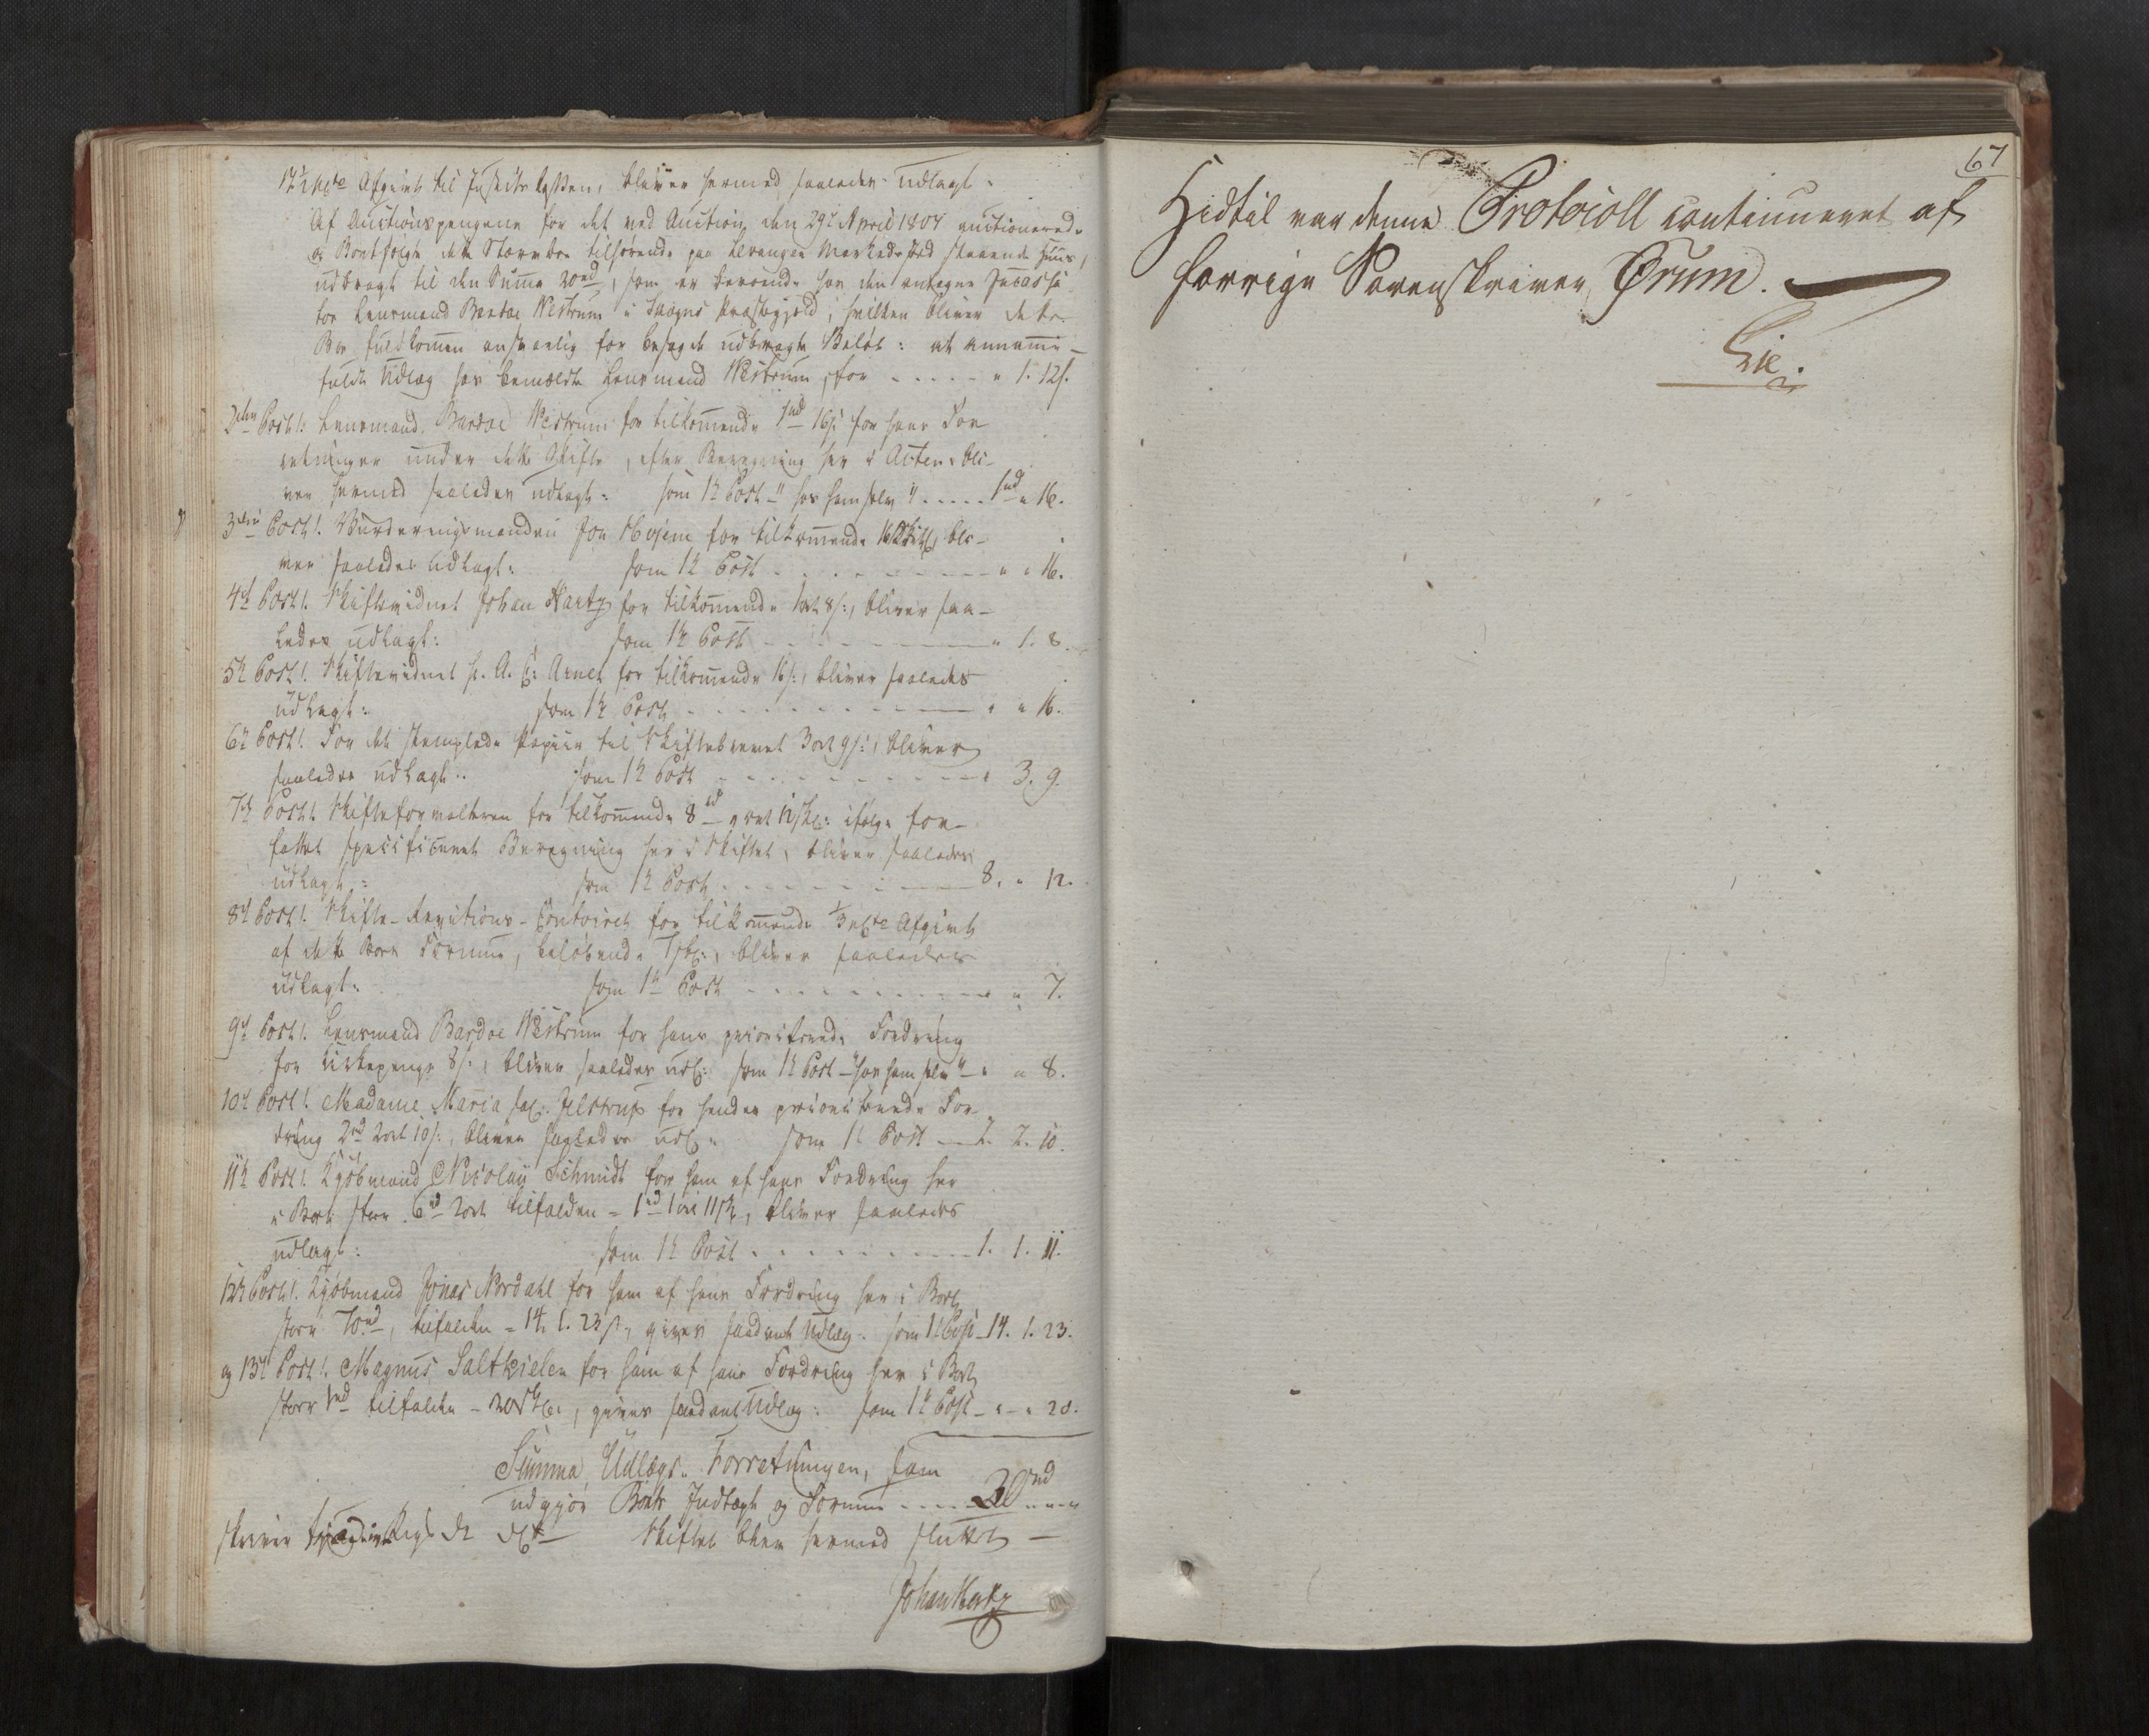 Afgivt til Justits Cassen, bliver hermed saaledes udlagt:
Af Auctionspengene for det ved Auction den 29de April 1804 auctionerede
og bortsolgte dette Stervboe tilhørende paa Levanger Markedssted staaende Huus,
udbragt til den Summa 20rd, som er beroende hos den antagne Incassa-
tor Lensmand Bardoe Westrum i Schogns Præstegjeld, hvilken bliver dette
Boe fuldkommen ansvarlig for besagde udbragte Beløb: at annamme
fuldt Udlæg hos bemældte Lensmand Westrum, for - - - - - " 1. 12s.
2den Post!: Lensmand Bardoe Westrum for tilkommende 1rd 16s: for hans For-
retninger under dette Skifte, efter Beregning her i Acten, bli-
ver hermed saaledes udlagt: som 1te Post - " hos ham selv " . . . . . 1rd " 16.
3die Post!. Vurderingsmanden Jon Mojem for tilkommende 16 Skill, bli-
ver saaledes udlagt: som 1te Post - - - - - - - " " 16.
4de Post!. Skiftevidnet Johan Hartz for tilkommende 1ort 8s:, bliver saa-
ledes udlagt: som 1te Post - - - - - - - " 1. 8.
5te Post!. Skiftevidnet H. A. C: Arnet for tilkommende 16s:, bliver saaledes
udlagt: som 1te Post - - - - - - - " " 16.
6te Post!. For det stemplede Papiir til Skiftebrevet 3ort 9s:, bliver
saaledes udlagt: som 1te Post - - - - - - - " 3. 9.
7de Post!. Skifteforvalteren for tilkommende 8rd " ort 12sk: ifølge for-
fattet specificeret Beregning her i Skiftet, bliver saaledes
udlagt: som 1te Post - - - - - - - 8. " 12.
8de Post!. Skifte-Revisions-Contoiret for tilkommende 1/3 pCto Afgivt
af dette Boes Formue, beløbende 7sk:, bliver saaledes
udlagt: som 1te Post - - - - - - - " " 7.
9de Post!. Lensmand Bardoe Westrum for hans prioriterede Fordring
for Liskepenge 8s:, bliver saaledes udl: som 1te Post - "hos ham selv" - " " 8.
10de Post!. Madame Maria sal: Jelstrup for hendes prioriterede For-
dring 2rd 2ort 10s:, bliver saaledes udl: som 1te Post - 2. 2. 10.
11te Post!. Kjøbmand Nicolay Schmidt for ham af hans Fordring her
i Boet stor 6rd 2ort tilfalden = 1rd 1ort 11sk, bliver saaledes
udlagt: som 1te Post - - - - - - - 1. 1. 11.
12te Post!. Kjøbmand Jonas Nordahl for ham af hans Fordring her i Boet
stor 70rd, tilfalden = 14. 1. 23s., gives saadant Udlæg: som 1te Post - 14. 1. 23.
og 13de Post!. Magnus Saltkielen for ham af hans Fordring her i Boet
stor 1rd tilfalden - 20sk:, gives saadant Udlæg: som 1te Post - " - " 20.
Summa Udlægs-Forretningen, som
udgjør Boets Indtægt og Formue - - - - 30rd " - "
Skiftet blev hermed sluttet —
Johan Hartz
67
Hidtil var denne Protocoll continueret af
forrige Sorenskriver Ørum.
Lie.